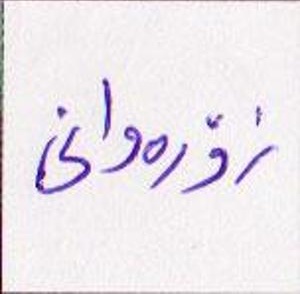 زۆرەوانی